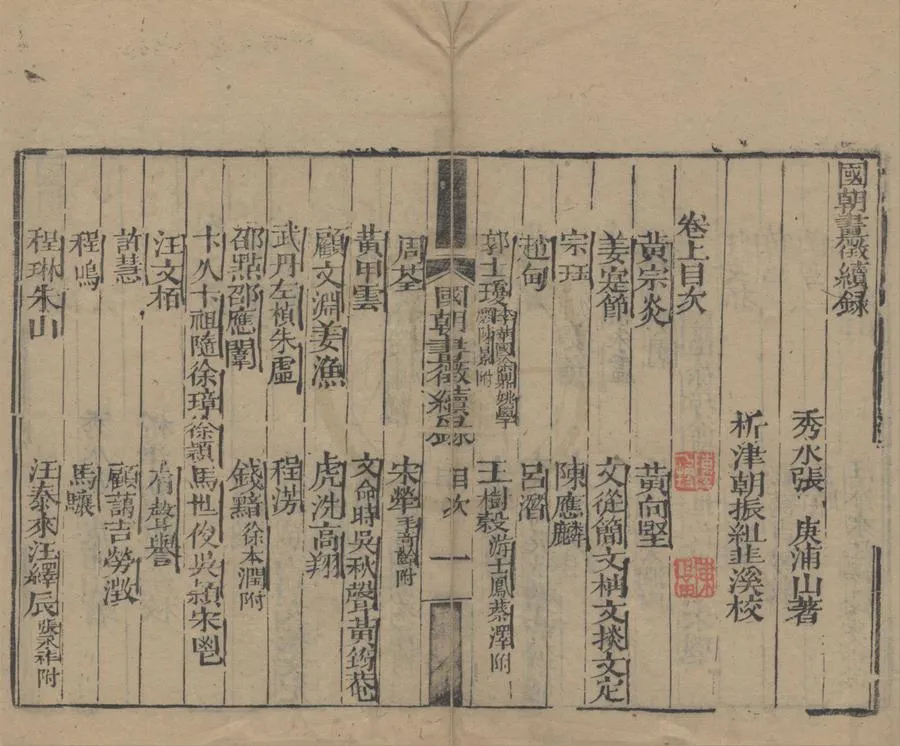 國朝畫徵續録
秀水張庚浦山著
析津朝振組韭溪校
卷上目次
黃宗炎 黃向堅
姜定節 文從簡文柟文掞文定
宗珏 陳應麟
趙甸 呂潛
郭士瓊李華國徐鼎姚學 陳景附 王樹穀游士鳳蔡澤附
國朝畫徵續録 目次 一
周荃 宋犖毛奇齡附
黃甲雲 文命時吳秋聲黃筠菴
顧文淵姜漁 虎洗高翔
武丹左楨朱虛 程涝
邵點邵應闈 錢黯徐本潤附
卞久卞祖隨徐璋徐穎馬世俊吳穎宋鬯
汪文栢 有聲譽
許慧 顧藹吉勞澂
程鳴 馬驤
程琳朱山 汪泰來汪繹辰張永祚附